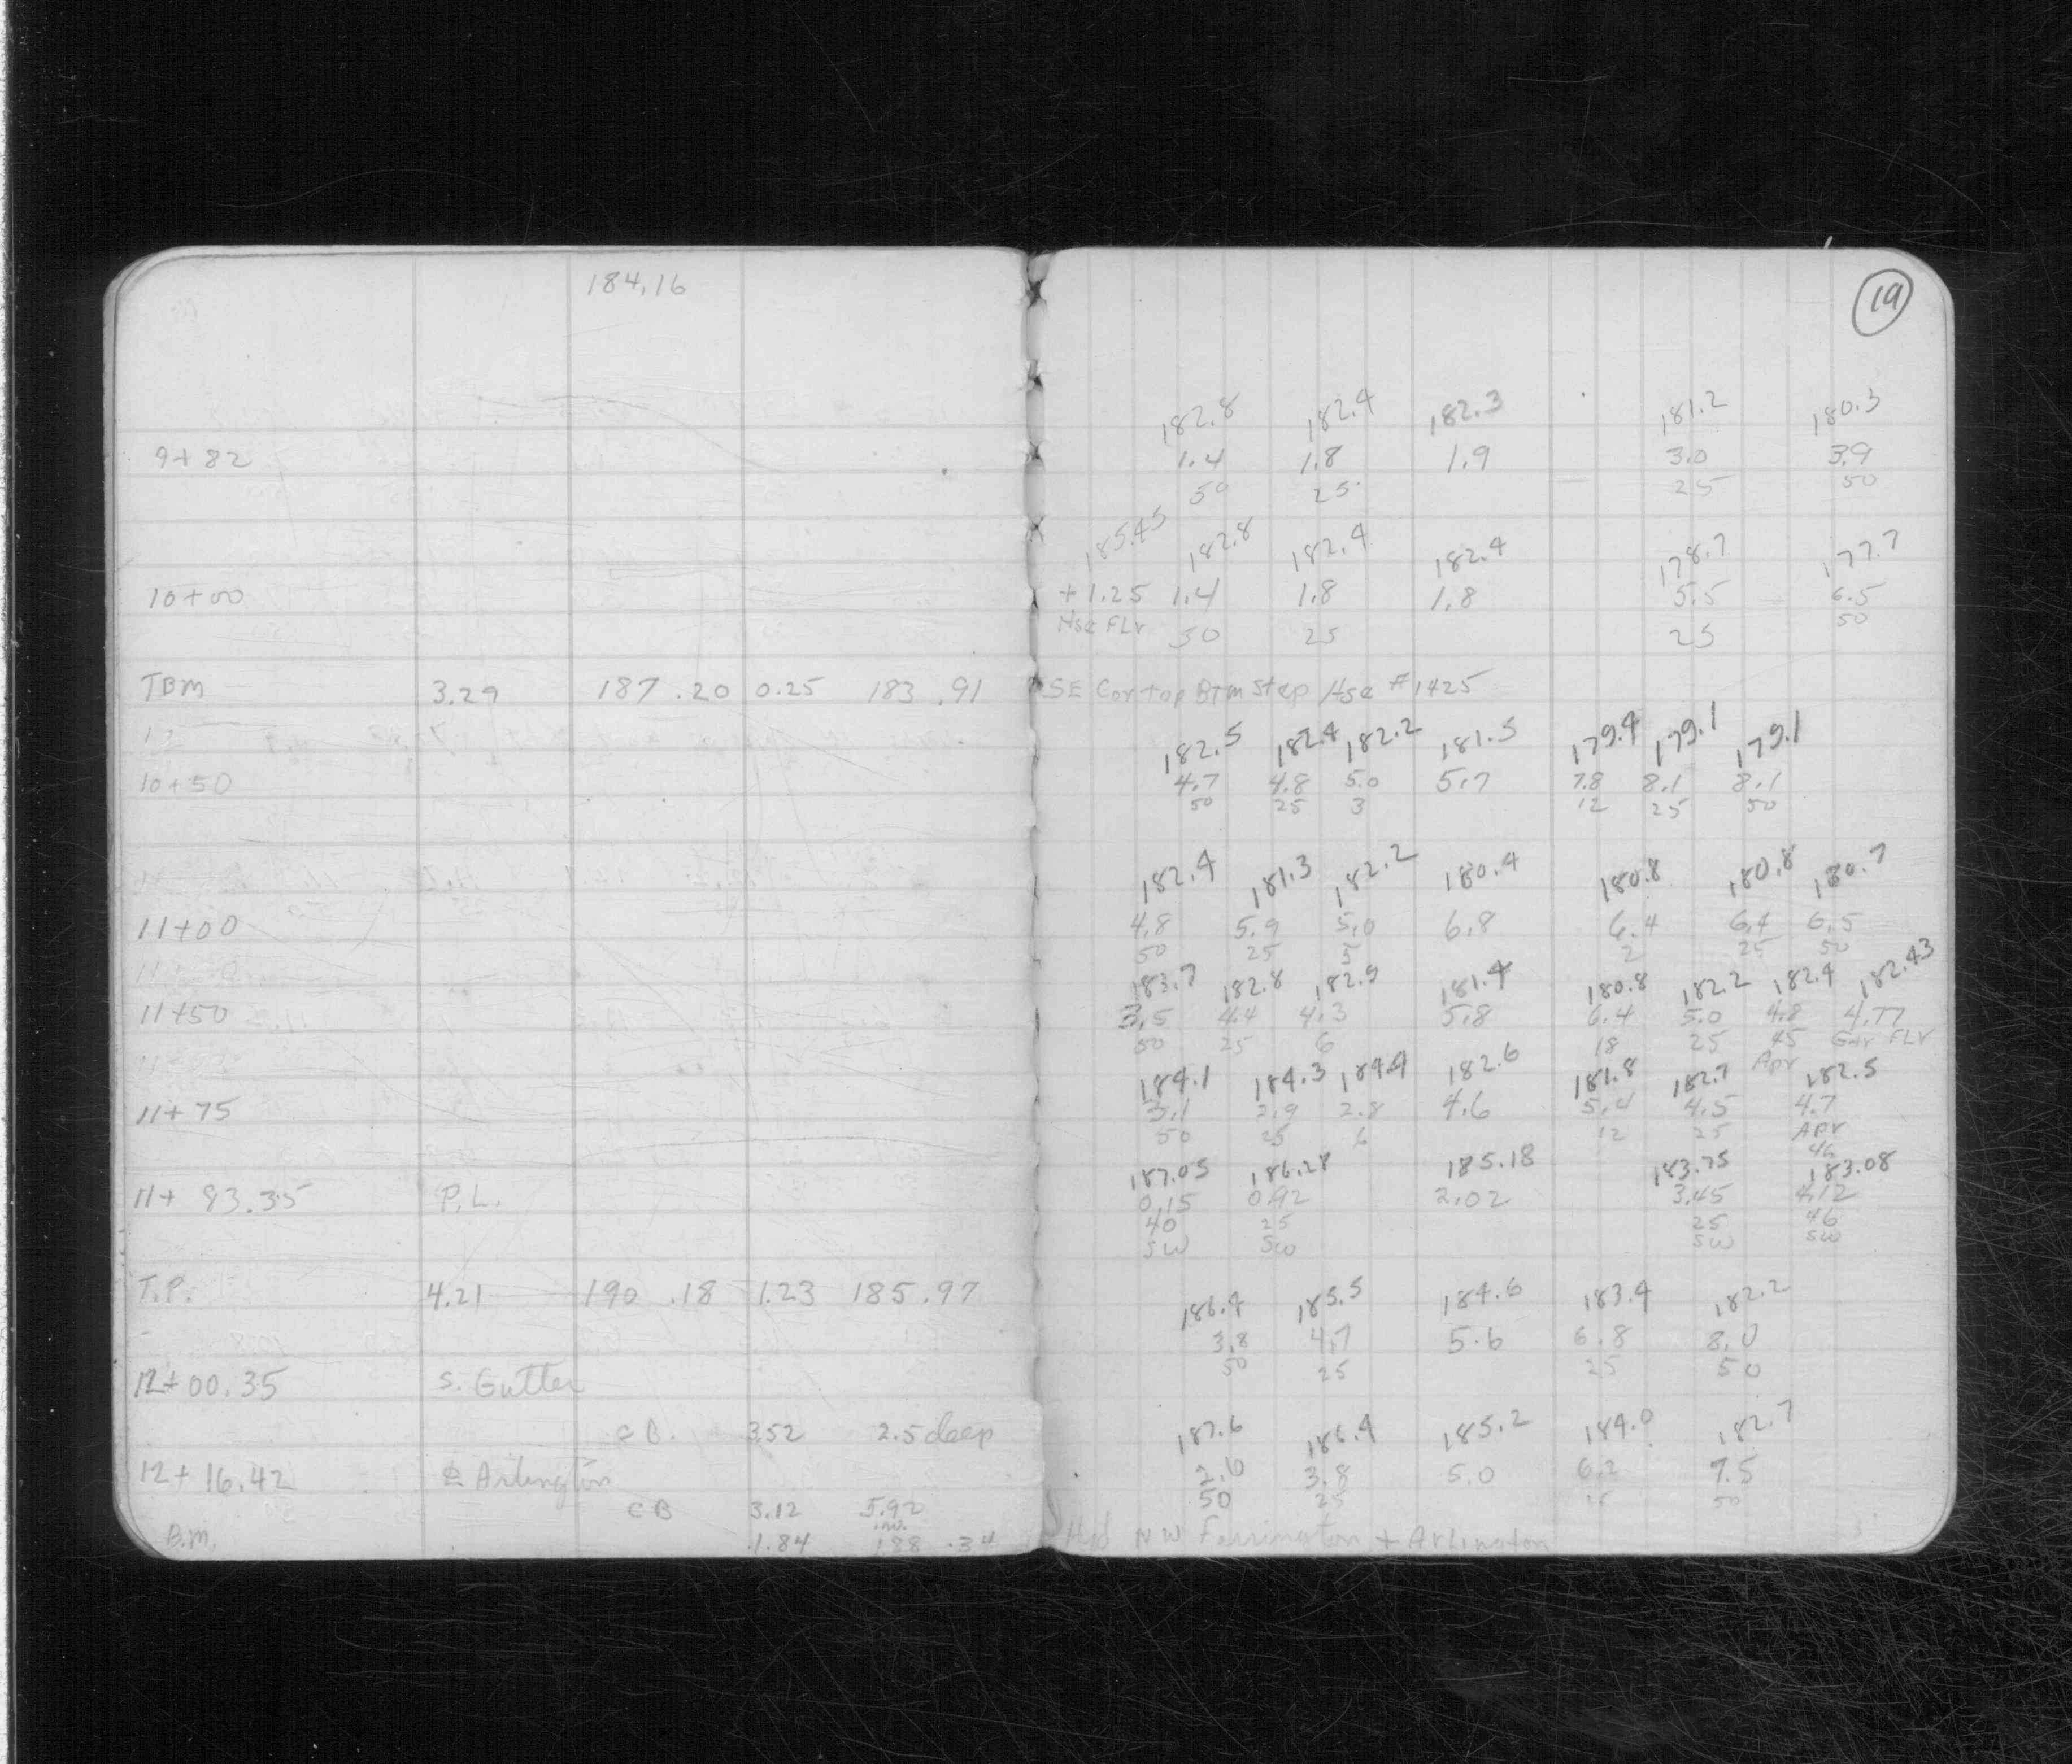 184.16
19
182.8 182.4 182.3 181.2 180.3
9+82 1.4 1.8 1.9 3.0 3.9
50 25 25 50
185.45 182.8 182.4 182.4 178.7 177.7
10+00 +1.25 1.4 1.8 1.8 5.5 6.5
Hse FLr 50 25 25 50
TBM 3.29 187.20 0.25 183.91 SE Cor top Btm Step Hse #1425
182.5 182.4 182.2 181.5 179.4 179.1 179.1
10+50 4.7 4.8 5.0 5.7 7.8 8.1 8.1
50 25 3 12 25 50
182.4 181.3 182.2 180.4 180.8 180.8 180.7
11+00 4.8 5.9 5.0 6.8 6.4 6.4 6.5
50 25 5 2 25 50
183.7 182.8 182.9 181.4 180.8 182.2 182.4 182.43
11+50 3.5 4.4 4.3 5.8 6.4 5.0 4.8 4.77
50 25 6 18 25 45 Gar FLr
Apr
184.1 184.3 184.4 182.6 181.8 182.7 182.5
11+75 3.1 2.9 2.8 4.6 5.4 4.5 4.7
50 25 6 12 25 Apr
46
187.05 186.28 185.18 183.75 183.08
11+83.35 P.L. 0.15 0.92 2.02 3.45 4.12
40 25 25 46
SW SW SW SW
T.P. 4.21 190.18 1.23 185.97
186.4 185.5 184.6 183.4 182.2
3.8 4.7 5.6 6.8 8.0
50 25 25 50
12+00.35 S. Gutter
CB. 3.52 2.5 deep
187.6 186.4 185.2 184.0 182.7
12+16.42 ℄ Arlington 2.6 3.8 5.0 6.2 7.5
50 25 50
CB 3.12 5.92
inv.
B.M. 1.84 188.34 Hyd NW Farrington + Arlington